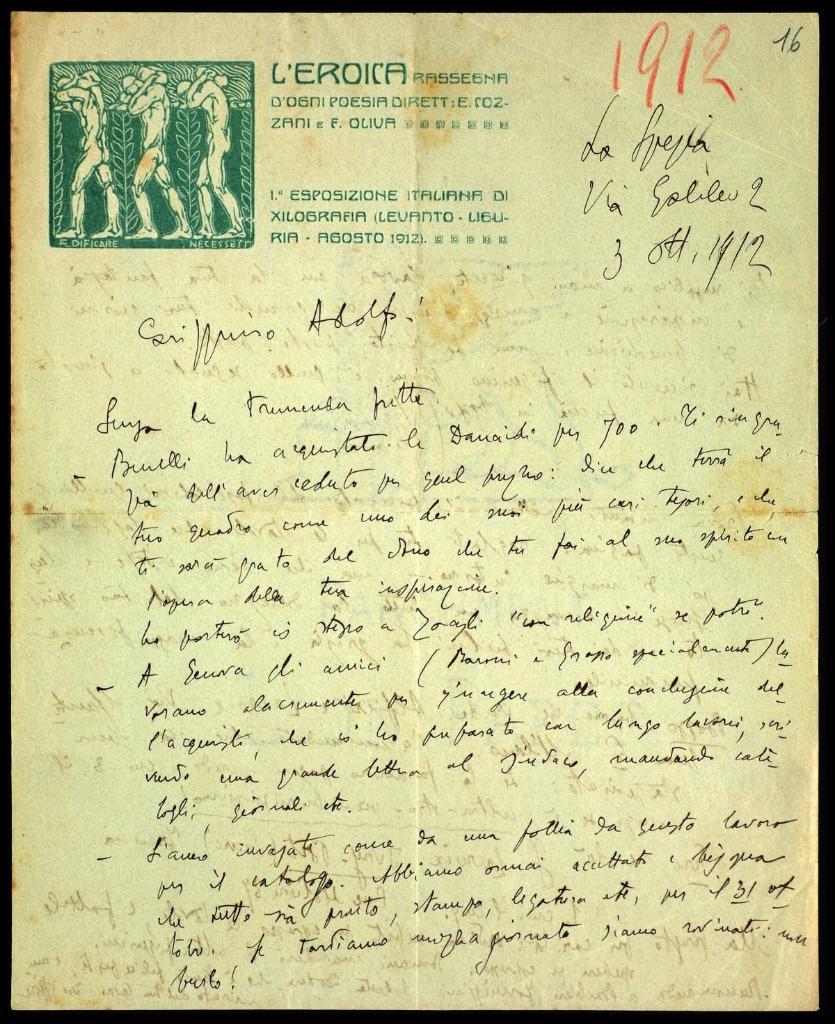 16
1912
L'EROICA RASSEGNA
D'OGNI POESIA DIRETT: E. COZ-
ZANI E F. OLIVA
1.ª ESPOSIZIONE ITALIANA DI
XILOGRAFIA (LEVANTO - LIGU-
RIA - AGOSTO 1912).
EDIFICARE NECESSEST
La Spezia
Via Galileo 2
3 Ott. 1912
Carissimo Adolfo!
Senza la tremenda fretta.
- Benelli ha acquistato le Danaidi per 700. Ti ringra-
zia dell'aver ceduto per quel prezzo: dice che terrà il
tuo quadro come uno dei suoi più cari tesori, e che
ti sarà grato del dono che tu fai al suo spirito con
l'opera della tua inspirazione.
Lo porterò io stesso a Zoagli "con religione" se potrò.
- A Genova gli amici (Baroni e Grosso specialmente) la-
vorano alacremente per giungere alla conclusione del-
l'acquisto, che io ho preparato con lungo lavorio, scri-
vendo una grande lettera al sindaco, mandando cata-
loghi, giornali etc.
- Siamo invasati come da una follia da questo lavoro
per il catalogo. Abbiamo ormai accettato e bisogna
che tutto sia pronto, stampa, legatura etc, per il 31 ot
tobre. Se tardiamo mezza giornata siamo rovinati: non
basta!